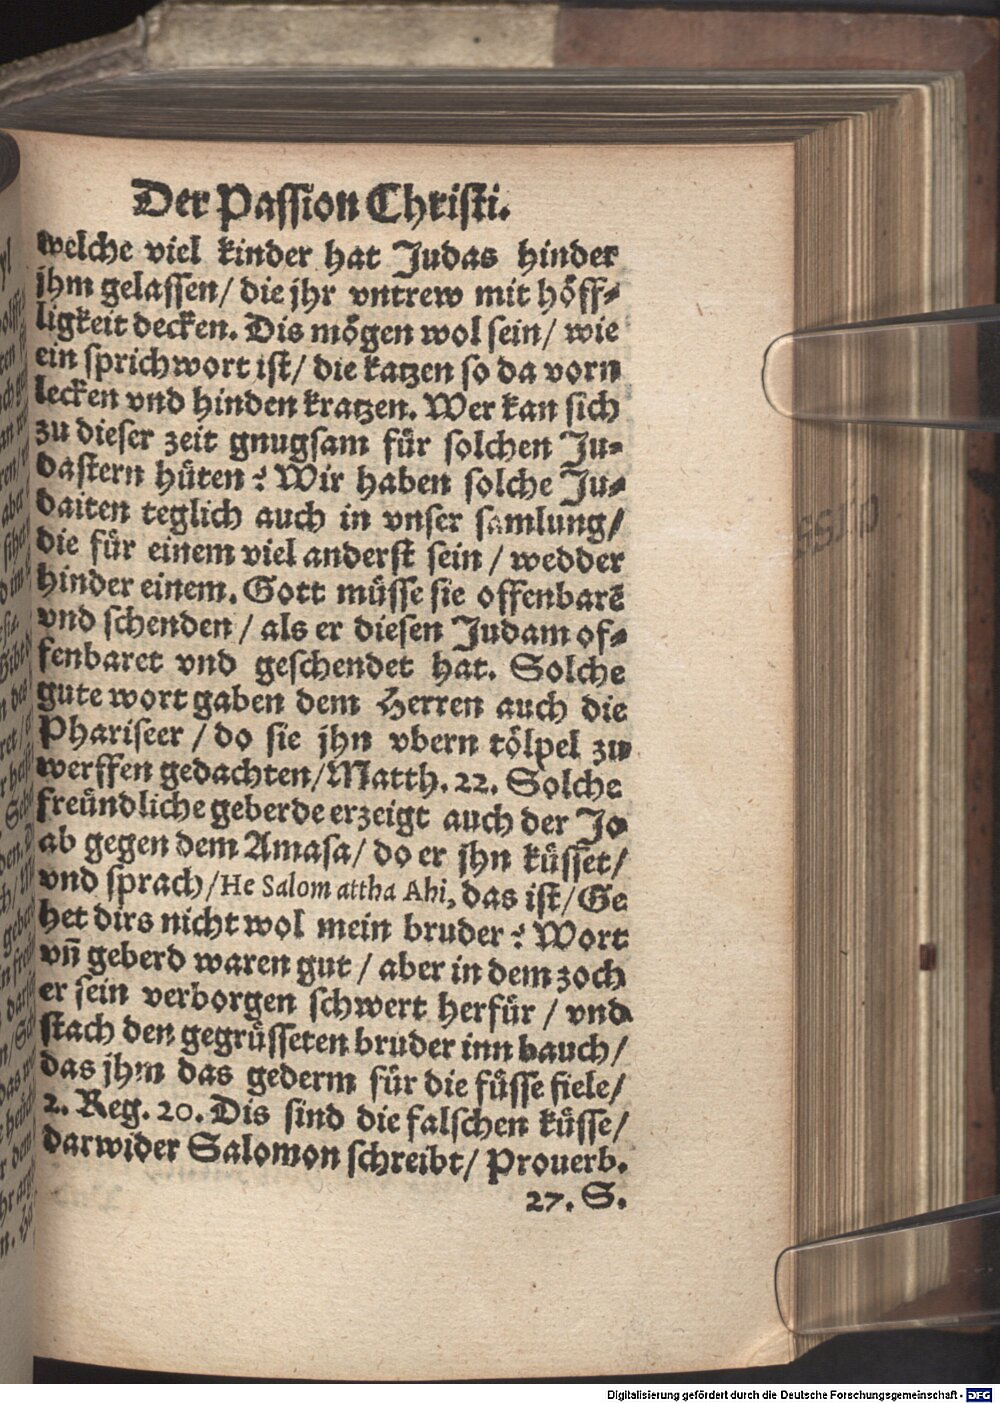 Der Passion Christi.
welche viel kinder hat Judas hinder
jhm gelassen/ die jhr vntrew mit höff⸗
ligkeit decken. Dis mögen wol sein/ wie
ein sprichwort ist/ die katzen so da vorn
lecken vnd hinden kratzen. Wer kan sich
zu dieser zeit gnugsam für solchen Ju⸗
dastern hüten? Wir haben solche Ju⸗
daiten teglich auch in vnser samlung/
die für einem viel anderst sein / wedder
hinder einem. Gott müsse sie offenbarē
vnd schenden / als er diesen Judam of⸗
fenbaret vnd geschendet hat. Solche
gute wort gaben dem Herren auch die
Phariseer / do sie jhn vbern tölpel zu
werffen gedachten/ Matth. 22. Solche
freündliche geberde erzeigt auch der Jo
ab gegen dem Amasa/ do er jhn küsset/
vnd sprach/ He Salom attha Ahi, das ist/ Ge
het dirs nicht wol mein bruder? Wort
vñ geberd waren gut / aber in dem zoch
er sein verborgen schwert herfür / vnd
stach den gegrüsseten bruder inn bauch/
das jhm das gederm für die füsse fiele/
2. Reg. 20. Dis sind die falschen küsse/
darwider Salomon schreibt/ Prouerb.
27. S.
Digitalisierung gefördert durch die Deutsche Forschungsgemeinschaft - DFG